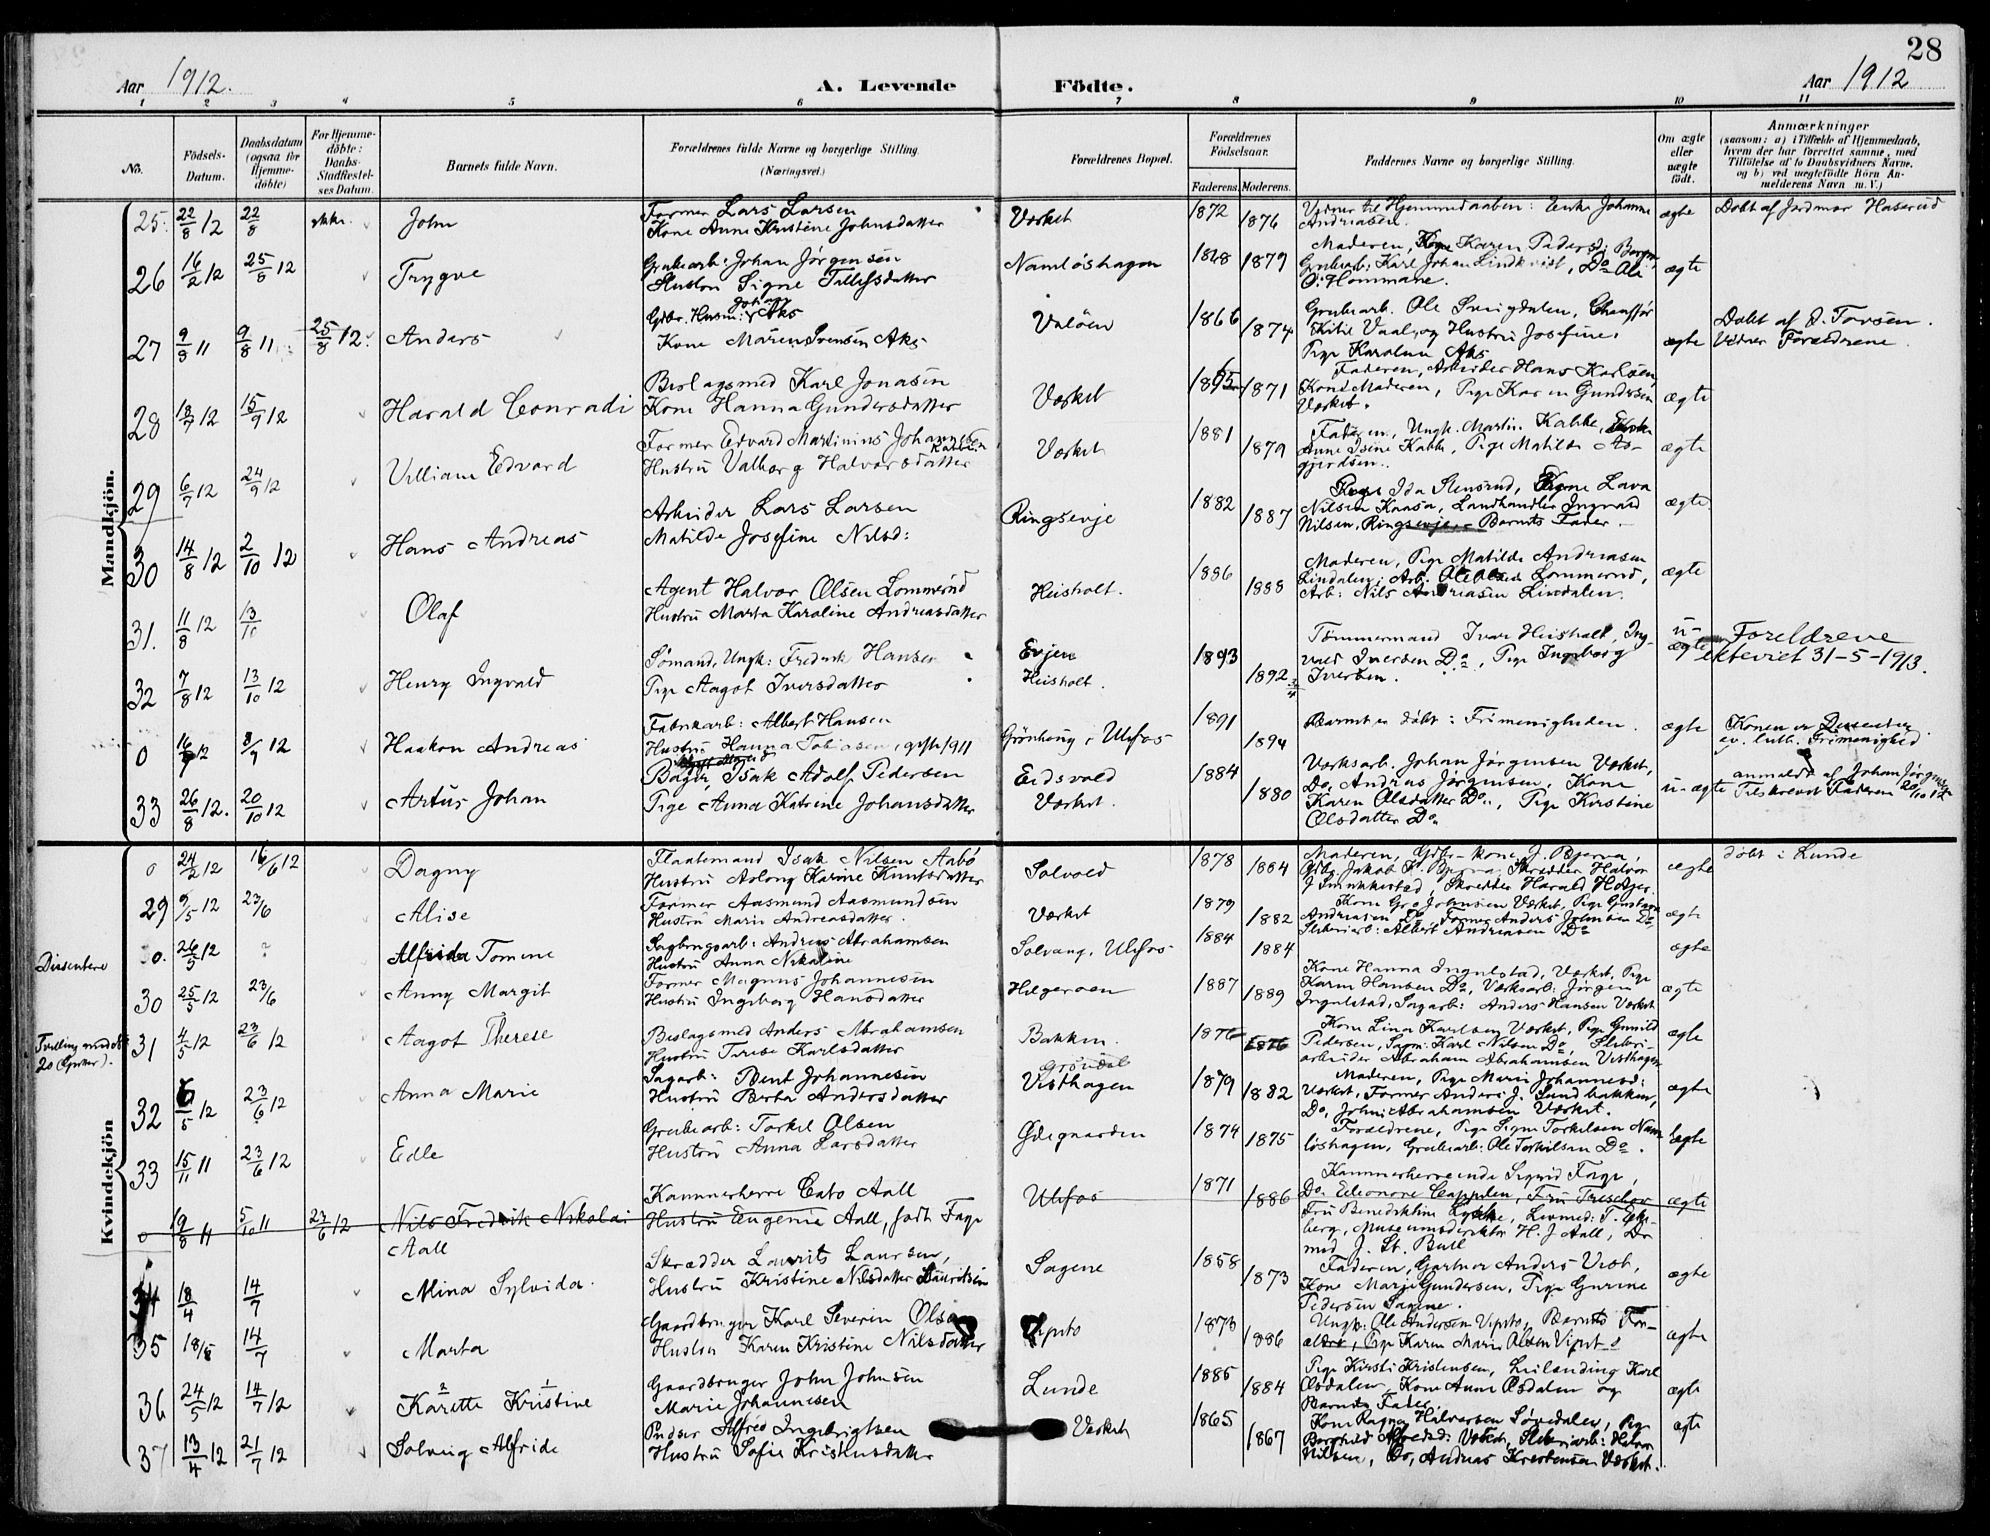 28
Aar 1912.
A. Levende Födte.
Aar 1912
1 2 3 4 5 6 7 8 9 10 11
No.
Födsels-Datum.
Daabsdatum (ogsaa for Hjemme-döbte)
For Hjemme-döbte: Daabs-Stadfæstel-ses Datum.
Barnets fulde Navn.
Forældrenes fulde Navne og borgerlige Stilling. (Næringsvei.)
Forældrenes Bopæl.
Forældrenes Födselsaar.
Faderens. Moderens.
Faddernes Navne og borgerlige Stilling.
Om ægte eller uægte födt.
Anmærkninger
(saasom: a) i Tilfælde af Hjemmedaab, hvem der har forrettet samme, med Tilföielse af to Daabsvidners Navne, og b) ved uægtefödte Börn An-melderens Navn m. V.)
Mandkjön.
25. 22/8 12 22/8 John
Former Lars Larsen
Kone Anne Kristine Johnsdatter
Værket 1872 1876
Vidner til Hjemmedaaben: Enke Johanne
Andreasen.
ægte Døbt af Jordmor Haserud
26 16/2 12 25/8 12 Trygve
Grubearb: Johan Jørgensen
Hustru Signe Tellefsdatter
Namløshagen 1879
Moderen, Karen
Grubearb: Karl Johan Lindkvist, Do Ole
O. Hommane.
ægte
27 9/8 11 9/8 11 25/8 12. Anders
Gdbr. Husm: Johan Aks
Kone Maren Svensen Aks
Valøen 1866 1874
Grubearb. Ole
Kitil Vaal, og Hustru Josefine,
Pige Karoline Aks
ægte
Døbt af O. Torsen.
Vidner Forældrene.
28 12 15/9 12 Harald Conradi
Beslagsmed Karl Jonasen
Kone Hanna Gundersdatter
Værket 1871
Faderen, Arbeider Hans Karlsen,
Kone Moderen, Pige Karen Gundersen
Værket.
ægte
29 6/7 12 24/9 12 Villiam Edvard
Former Edvard Martinius Johannesen
Hustru Valborg Halvorsdatter
Værket 1881 1879
Faderen, Ungk. Martin Kabbe,
Anne Kabbe, Pige Matilde As-
gjerdsen.
ægte
30 14/8 12 2/10 12 Hans Andreas
Arbeider Lars Larsen
Matilde Josefine Nilsd:
Ringsevje 1882 1887
Pige Ida Stensrud, Pigene Lava
Nilsen Kaasa, Landhandler Ingvald
Nilsen, Ringsevje, Barnets Fader.
ægte
31. 11/8 12 13/10 Olaf
Agent Halvor Olsen Lommerud
Hustru Marta Karoline Andreasdatter
Heisholt. 1886 1888
Moderen, Pige Matilde Andreasen
Lindalen, Arb. Lommerud,
Arb: Nils Andreasen Lindalen.
ægte
32 7/8 12 13/10 12 Henry Ingvald
Sømand, Ungk: Fredrik Hansen
Pige Aagot Iversdatter
Evjen
Heisholt. 1893 1892
Tømmermand Ivar Heisholt, Ing-
vald Iversen Do, Pige Ingeborg
Iversen.
u-
ægte
Foreldrene
ekteviet 31-5-1913.
0 16/7 12 8/9 12 Haakon Andreas
Fabrikarb: Albert Hansen
Hustru Hanna Tobiasen, gift 1911
Grønhaug, Ulefos 1891 1894
Barnet er døbt i Frimenigheden.
ægte
Konen er Dissenter
ev. luth. Frimenighed
33 26/8 12. 20/10 12 Artur Johan
Bager, Isak Adolf Pedersen
Pige Anna Katrine Johansdatter
Eidsvold
Værket. 1884 1880
Værksarb. Johan Jørgensen Værket,
Do, Andreas Jørgensen, Kone
Karen Olsdatter Do., Pige Kirstine
Olsdatter Do
u-ægte
anmeldt af Johan Jørgensen
Tilskrevet Faderen
Kvindekjön
0 24/2 12 16/6 12 Dagny
Flaatemand Isak Nilsen Aabø
Hustru Aslong Karine Knutsdatter
Solvold 1878 1884
Moderen, Gdbr-kone J. Bjerva,
ægte
døbt i Lunde
29 9/5 12 23/6 Alise
Former Aasmund Aasmundsen
Hustru Marie Andreasdatter.
Værket 1879 1882
Kone Gro Johnsen Værket, Pige Gustava
Andreasen Do, Former Anders Johnsen Do,
Sliberiarb: Albert Andreasen Do
ægte
Dissentere
0. 26/5 12 ? Alfrida Tomine
Sagbrugsarb: Andreas Abrahamsen
Hustru Anna Nikoline
Solvang, Ulefos 1884 1884
ægte
30 25/5 12 23/6 Anny Margit
Former Magnus Johannesen
Hustru Ingeborg Hansdatter
Helgeroen 1887 1889
Kone Hanna Ingulstad, Værket, Pige
Karen Hansen Do, Værksarb: Jørgen
Ingulstad, Sagarb: Anders Hansen Værket
ægte
Tvilling med No
20 (Gutter).
31 4/5 12 23/6 12 Aagot Therese
Beslagsmed Anders Abrahamsen
Hustru Terese Karlsdatter
Bakken. 1876 1876
Kone Lina Karlsen Værket, Pige Gunild
Pedersen, Sagm. Karl Nilsen Do, Sliberi-
arbeider Abraham Abrahamsen Vesthagen
ægte
32 6/5 12 23/6 12 Anna Marie
Sagarb: Bent Johannesen
Hustru Berta Andersdatter
Grøndal
Vesthagen 1879 1882
Moderen, Pige Marie Johannesd:
Værket, Former Anders J. Sundbakken,
Do, John Abrahamsen Værket.
ægte
33 15/11 11 23/6 12 Edle
Grubearb: Torkel Olsen
Hustru Anna Larsdatter
Ødegaarden 1874 1875
Forældrene, Pige Signe Torkilsen Nam-
løshagen, Grubearb: Ole Torkilsen Do.
ægte
0 19/8 11 5/10 11 23/6 12 Nils Fredrik Nikolai
Aall
Kammerherre Cato Aall
Hustru Eugenie Aall, født Faye
Ulefos 1871 1886
Kammerherreinde Sigrid Faye,
Do. Eleonore Cappelen, Fru Treschow
Fru Benedikline Lykke,
berg, Museumsdirektør H. J Aall, Dr
med J. St. Bull
ægte
34 18/4 14/7 Mina Sylvida.
Skrædder Laurits Laursen,
Hustru Kristine Nilsdatter Lauritsen
Sagene 1858 1873
Faderen, Gartner Anders Vest,
Kone Marje Gundersen, Pige Gurine
Pedersen Sagene.
ægte
35 18/5 14/7 Marta
Gaardbruger Karl Severin Olsen
Hustru Karen Kristine Nilsdatter
Vipeto 1873 1886
Ungk: Ole Andersen Vipeto, Barnets For-
ældre, Pige Karen Marie Olsen Vipeto
ægte
36 24/5 12 14/7 12 Karette Kristine
Gaardbruger John Johnsen
Marie Johannesen
Lunde 1885 1884
Pige Kirsti Kristensen, Leilending Karl
Øsdalen, Kone Anne Øsdalen og
Barnets Fader.
ægte
37 13/4 12 21/7 12 Solveig Alfride
Pudser Alfred Ingebrigtsen
Hustru Sofie Kristensdatter
Værket 1865 1867
Kone Ragna Halvorsen Søvedalen, Pige
Borghild Alfredsd: Værket, Sliberiarb: Halvor
Nilsen, Do, Andreas Kristensen Værket.
ægte